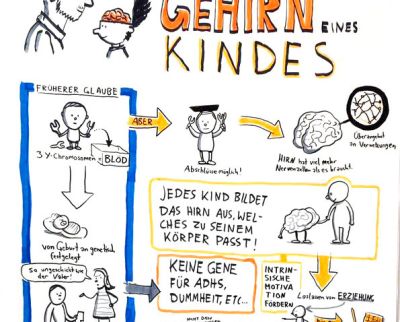 GEHIRN EINES
KINDES
FRÜHERER GLAUBE
3 Y-Chromosomen = BLÖD
ABER
Abschlüsse möglich!
HIRN hat viel mehr
Nervenzellen als es braucht.
Überangebot
an Vernetzungen
von Geburt an genetisch
festgelegt
JEDES KIND BILDET
DAS HIRN AUS, WEL-
CHES ZU SEINEM
KÖRPER PASST!
So ungeschickt wie
der Vater!
KEINE GENE
FÜR ADHS,
DUMMHEIT, ETC...
INTRIN-
SISCHE
MOTIVA
TION
FÖRDERN
Loslassen von ERZIEHUNG